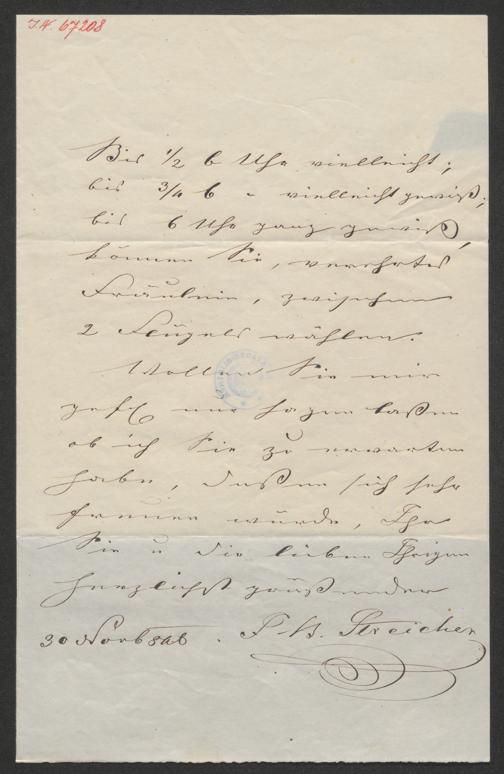 J.N. 67208
Bis 1/2 6 Uhr vielleicht;
bis 3/4 6 " vielleicht gewiß;
bis 6 Uhr ganz gewiß,
können Sie, verehrtes
Fräulein, zwischen
2 Flügels wählen.
Wollen Sie mir
gefl nur sagen laßen
ob ich Sie zu erwarten
habe, deßen sich sehr
freuen würde, Ihr
Sie u die lieben Ihrigen
herzlichst grüßender
30 Novb J. B. Streicher